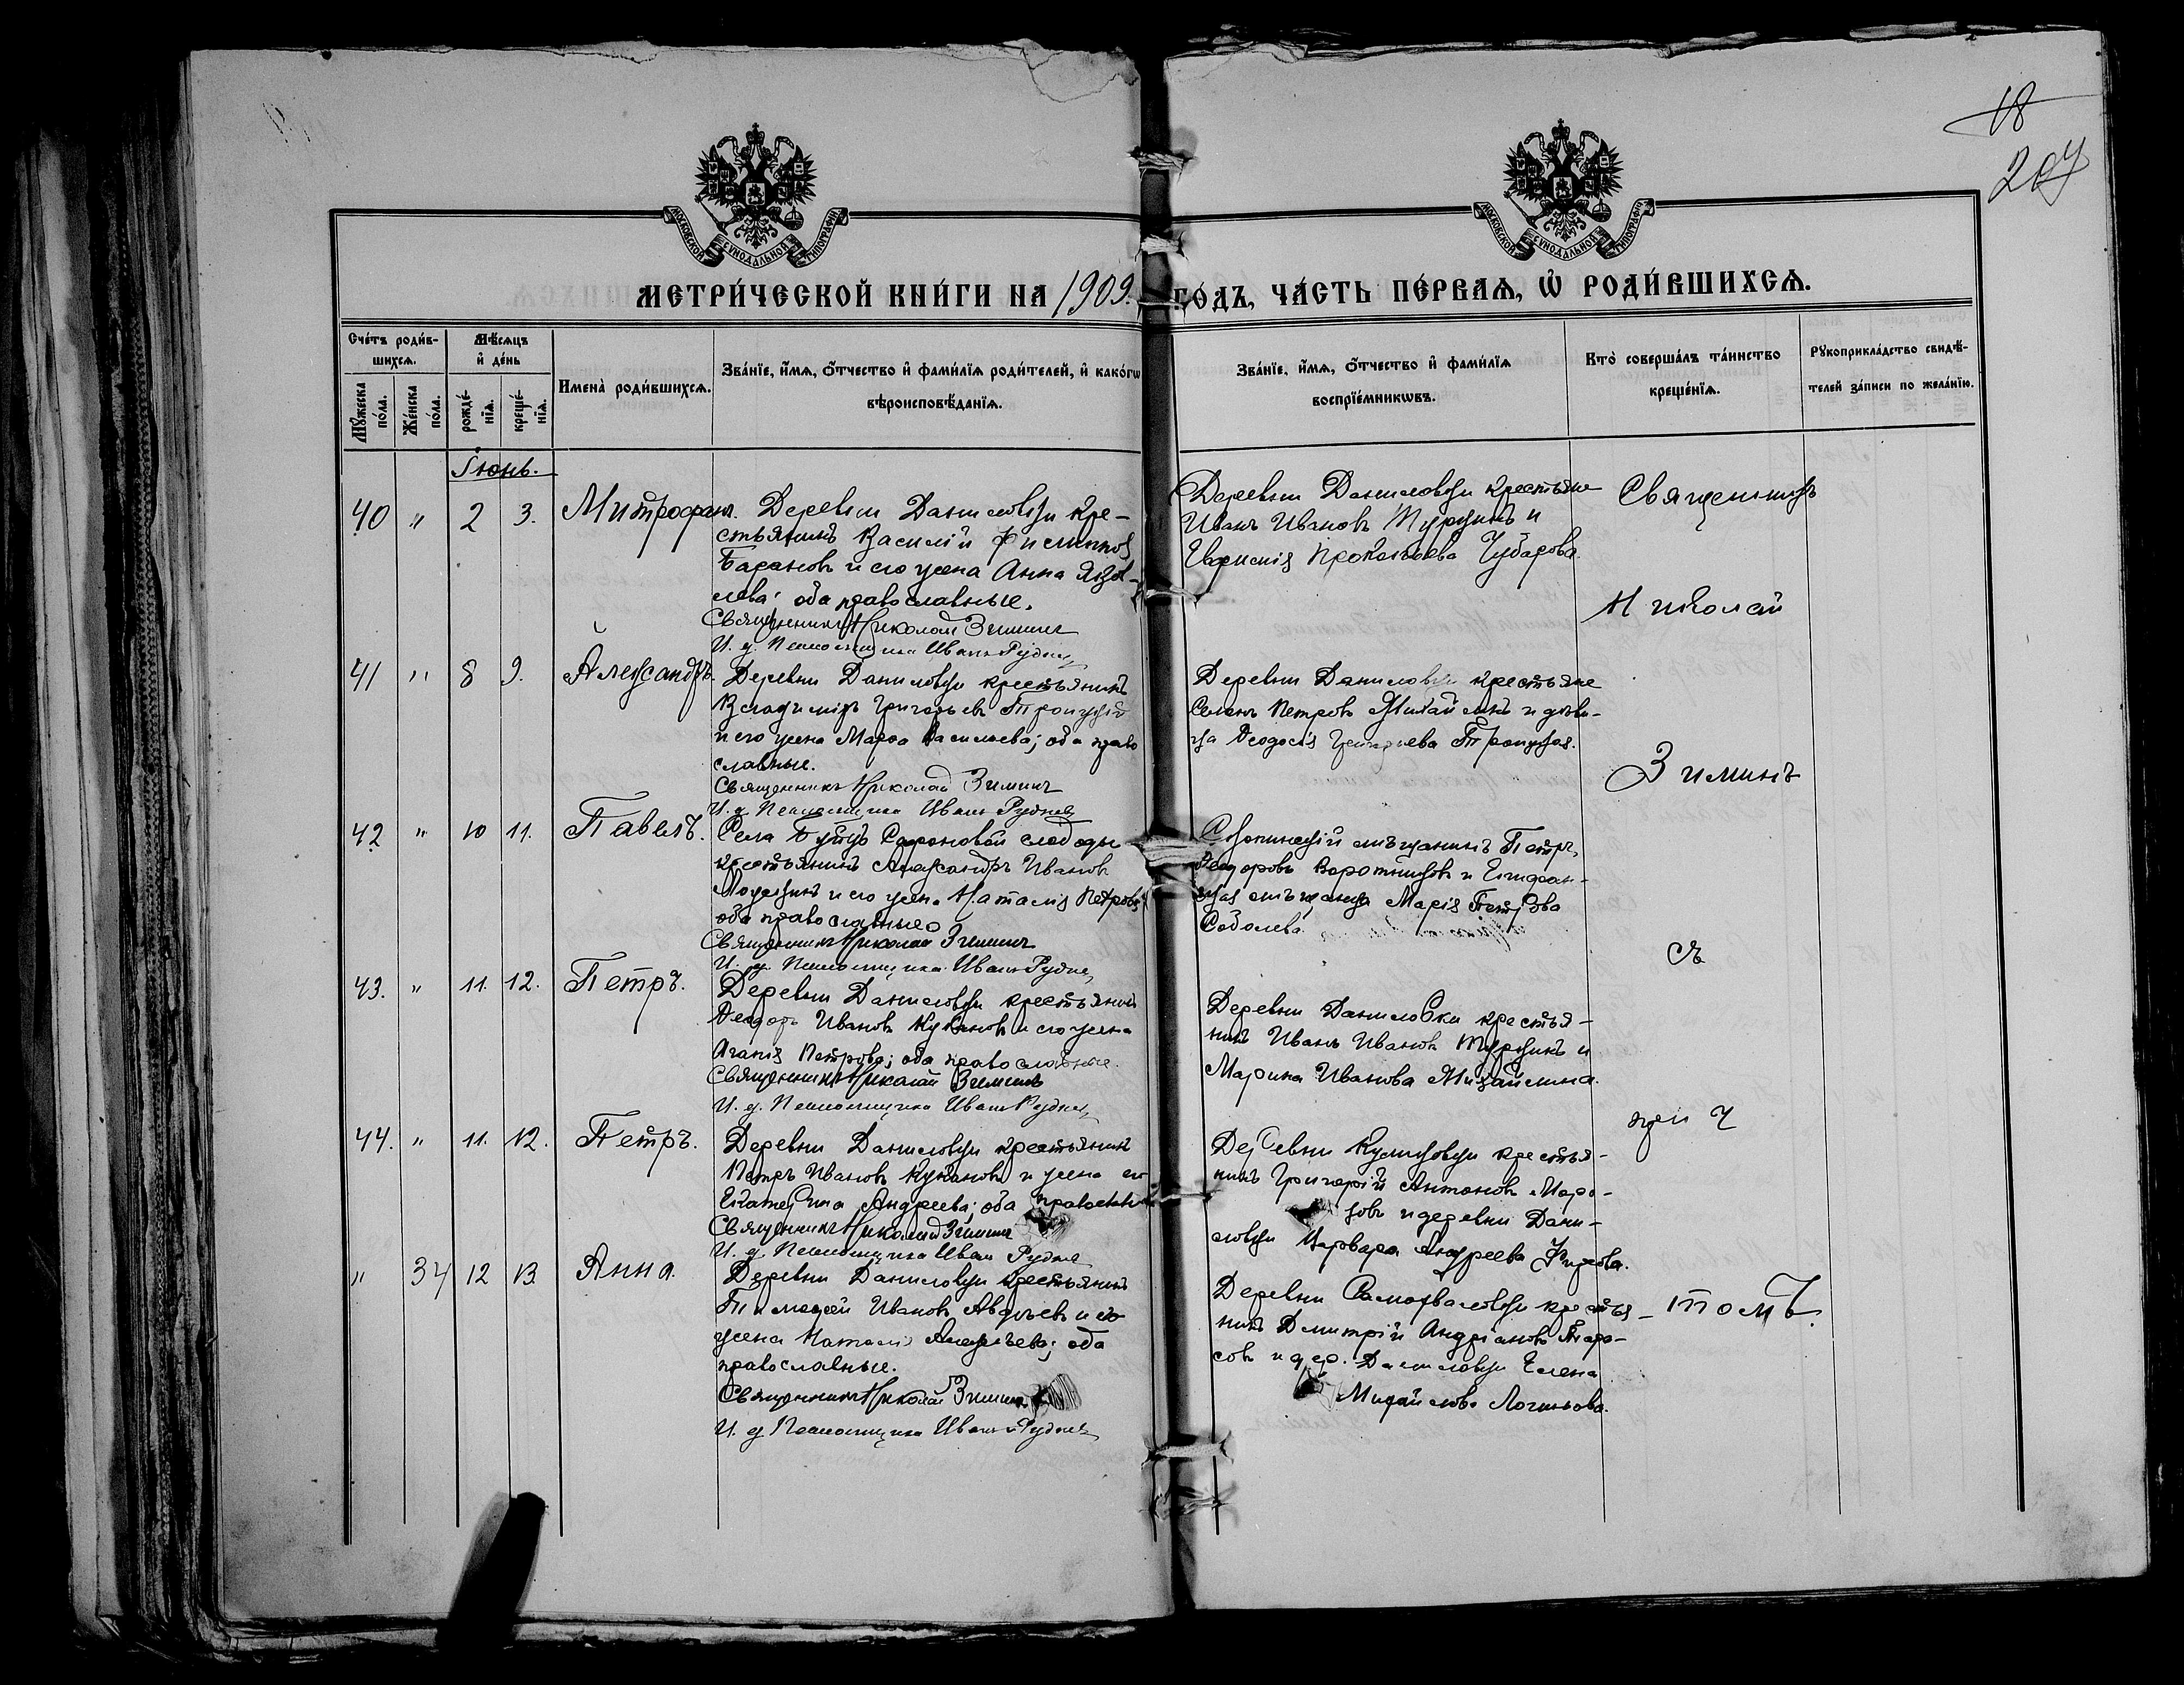 18
207
МОСКОВСКОЙ СѴНОДАЛЬНОЙ ТИПОГРАФІИ
МОСКОВСКОЙ СѴНОДАЛЬНОЙ ТИПОГРАФІИ
МЕТРИ́ЧЕСКОЙ КНИ́ГИ НА 1909. ГО́ДЪ, ЧА́СТЬ ПЕ́РВАѦ, Ѡ҆ РОДИ́ВШИХСѦ.
Сче́тъ роди́в-
шихсѧ.
Мꙋ́жеска по́ла.
Же́нска по́ла.
Мѣ́сѧцъ
и҆ де́нь
рожде́-
нїѧ.
креще́-
нїѧ.
И҆мена̀ роди́вшихсѧ.
Зва́нїе, и҆́мѧ, ѻ҆́тчество и҆ фами́лїѧ роди́телей, и҆ како́гѡ
вѣроисповѣ́данїѧ.
Зва́нїе, и҆́мѧ, ѻ҆́тчество и҆ фами́лїѧ
воспрїе́мникѡвъ.
Кто̀ соверша́лъ та́инство
креще́нїѧ.
Рꙋкоприкла́дство свидѣ́-
телей за́писи по жела́нїю.
Іюнь.
40 " 2 3. Митрофанъ.
Деревни Даниловки кре-
стьянинъ Василій Филиппов
Барановъ и его жена Анна Яков-
лева; оба православные.
Священникъ Николай Зиминъ
И. д. Псаломщика Иванъ Руднев
Деревни Даниловки крестьяне
Иванъ Ивановъ Туркинъ и
Прокопьева Чубарова.
41 " 8 9. Александръ.
Деревни Даниловки крестьянинъ
Владиміръ Григорьевъ Троицкій
и его жена Марѳа Васильева; оба право
славные.
Священникъ Николай Зиминъ
И. д. Псаломщика Иванъ Руднев
Деревни Даниловки крестьяне
Петровъ Михайлинъ и дѣви-
ца Ѳеодосія Григорьева Троицкая.
42 " 10 11. Павелъ.
Села Сафоновой слободы
крестьянинъ Александръ Ивановъ
и его жена Наталія Петрова
оба православные
Священникъ Николай Зиминъ
И. д. Псаломщика Иванъ Руднев
Скопинскій мѣщанинъ Петръ
Ѳеодоровъ Воротниковъ и Епифан-
ская мѣщанка Марія Петрова
Соболева.
43. " 11. 12. Петръ.
Деревни Даниловки крестьянинъ
Ѳеодоръ Ивановъ Кукановъ и его жена
Агапія Петрова; оба православные.
Священникъ Николай Зиминъ
И. д. Псаломщика Иванъ Руднев
Деревни Даниловки крестья-
нинъ Иванъ Ивановъ Туркинъ и
Марина Иванова Михайлина.
44. " 11. 12. Петръ.
Деревни Даниловки крестьянинъ
Петръ Ивановъ Кукановъ и жена его
Екатерина Андреева; оба православн
Священникъ Николай Зиминъ
И. д. Псаломщика Иванъ Руднев
Деревни Куликовки крестья-
нинъ Григорій Антоновъ Моро-
зовъ и деревни Дани-
ловки Варвара Андреева Фирсова.
" 34 12 13 Анна.
Деревни Даниловки крестьянинъ
Тимоѳей Ивановъ Авдѣевъ и его
жена Наталія Алексѣева; оба
православные.
Священникъ Николай Зиминъ
И. д. Псаломщика Иванъ Руднев
Деревни Самохваловки крестья-
нинъ Дмитрій Андріановъ Тара-
совъ и дер. Даниловки Елена
Михайлова Логинова.
Священникъ
Николай
Зиминъ
съ
прич
томъ.